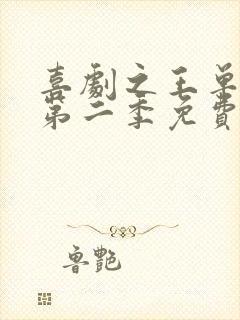 喜劇之王單
第二季免費
魯艷